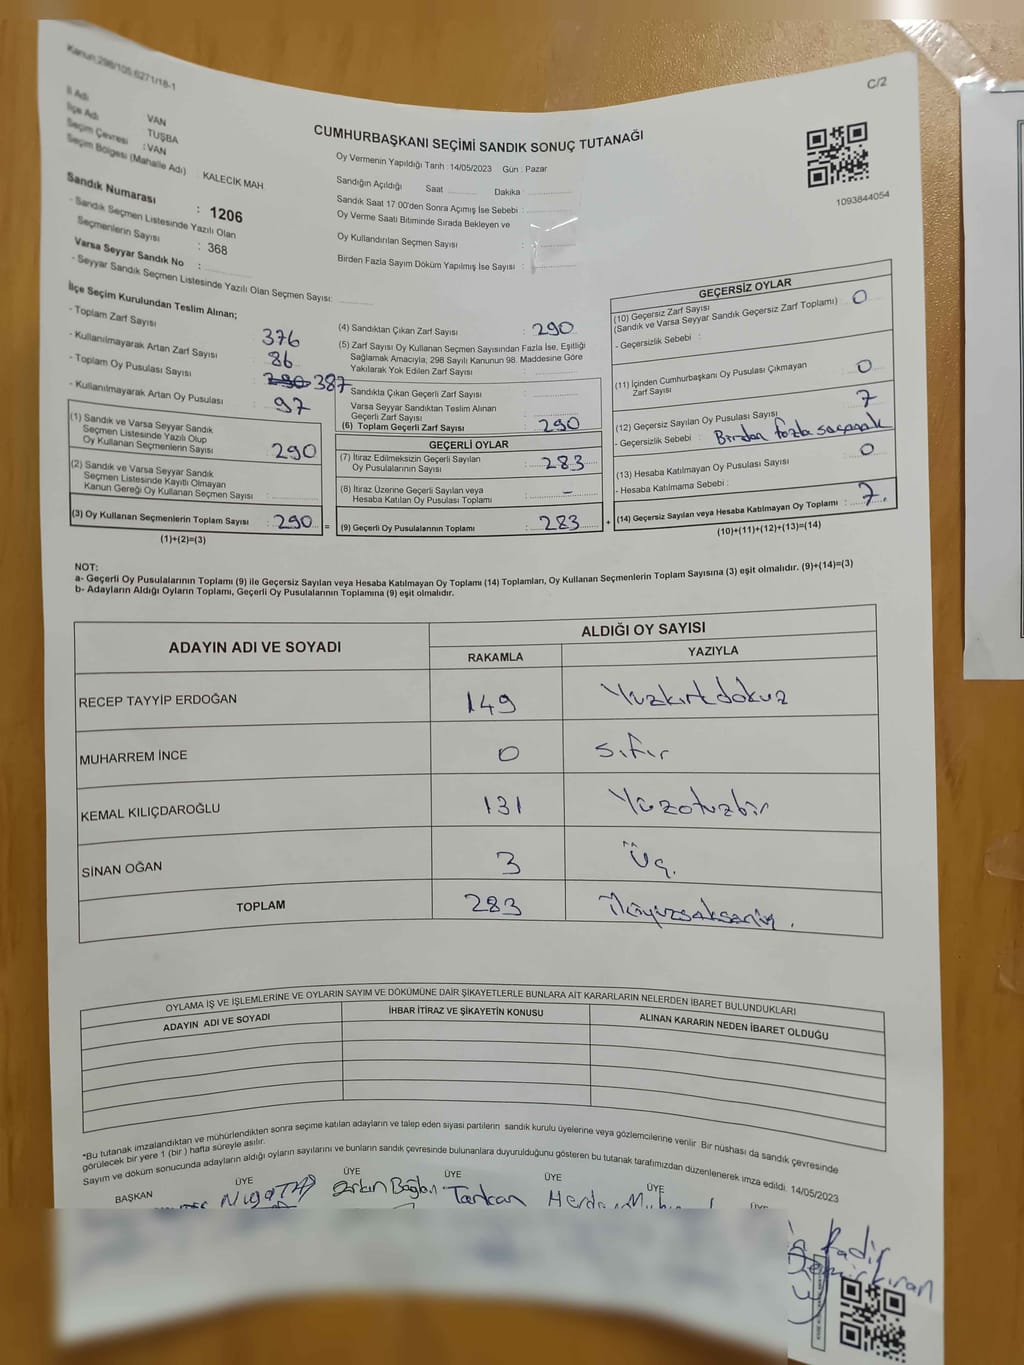 Kanun:298/105.6271/18-1
C/2
İl Adı VAN
İlçe Adı TUŞBA
Seçim Çevresi :VAN
Seçim Bölgesi (Mahalle Adı) : KALECİK MAH
Sandık Numarası : 1206
- Sandık Seçmen Listesinde Yazılı Olan
Seçmenlerin Sayısı : 368
Varsa Seyyar Sandık No :
- Seyyar Sandık Seçmen Listesinde Yazılı Olan Seçmen Sayısı:
CUMHURBAŞKANI SEÇİMİ SANDIK SONUÇ TUTANAĞI
Oy Vermenin Yapıldığı Tarih :14/05/2023 Gün : Pazar
Sandığın Açıldığı Saat Dakika
Sandık Saat 17 00'den Sonra Açımış İse Sebebi :
Oy Verme Saati Bitiminde Sırada Bekleyen ve
Oy Kullandırılan Seçmen Sayısı :
Birden Fazla Sayım Döküm Yapılmış İse Sayısı :
1093844054
İlçe Seçim Kurulundan Teslim Alınan;
- Toplam Zarf Sayısı 376
- Kullanılmayarak Artan Zarf Sayısı 86
- Toplam Oy Pusulası Sayısı : 290 387
- Kullanılmayarak Artan Oy Pusulası : 97
(1) Sandık ve Varsa Seyyar Sandık
Seçmen Listesinde Yazılı Olup
Oy Kullanan Seçmenlerin Sayısı : 290
(2) Sandık ve Varsa Seyyar Sandık
Seçmen Listesinde Kayıtlı Olmayan
Kanun Gereği Oy Kullanan Seçmen Sayısı :
(3) Oy Kullanan Seçmenlerin Toplam Sayısı : 290 =
(1)+(2)=(3)
(4) Sandıktan Çıkan Zarf Sayısı : 290
(5) Zarf Sayısı Oy Kullanan Seçmen Sayısından Fazla İse, Eşitliği
Sağlamak Amacıyla, 298 Sayılı Kanunun 98. Maddesine Göre
Yakılarak Yok Edilen Zarf Sayısı :
Sandıkta Çıkan Geçerli Zarf Sayısı :
Varsa Seyyar Sandıktan Teslim Alınan
Geçerli Zarf Sayısı :
(6) Toplam Geçerli Zarf Sayısı : 290
GEÇERLİ OYLAR
(7) İtiraz Edilmeksizin Geçerli Sayılan
Oy Pusulasının Sayısı : 283
(8) İtiraz Üzerine Geçerli Sayılan veya
Hesaba Katılan Oy Pusulası Toplamı : -
(9) Geçerli Oy Pusulalarının Toplamı : 283 +
GEÇERSİZ OYLAR
(10) Geçersiz Zarf Sayısı
(Sandık ve Varsa Seyyar Sandık Geçersiz Zarf Toplamı) : 0
- Geçersizlik Sebebi :
(11) İçinden Cumhurbaşkanı Oy Pusulası Çıkmayan
Zarf Sayısı : 0
(12) Geçersiz Sayılan Oy Pusulası Sayısı : 7
- Geçersizlik Sebebi : Birden fazla
(13) Hesaba Katılmayan Oy Pusulası Sayısı : 0
- Hesaba Katılmama Sebebi :
(14) Geçersiz Sayılan veya Hesaba Katılmayan Oy Toplamı : 7.
(10)+(11)+(12)+(13)=(14)
NOT:
a- Geçerli Oy Pusulalarının Toplamı (9) ile Geçersiz Sayılan veya Hesaba Katılmayan Oy Toplamı (14) Toplamları, Oy Kullanan Seçmenlerin Toplam Sayısına (3) eşit olmalıdır. (9)+(14)=(3)
b- Adayların Aldığı Oyların Toplamı, Geçerli Oy Pusulalarının Toplamına (9) eşit olmalıdır.
ADAYIN ADI VE SOYADI ALDIĞI OY SAYISI
RAKAMLA YAZIYLA
RECEP TAYYİP ERDOĞAN 149 Yüzkırkdokuz
MUHARREM İNCE 0 sıfır
KEMAL KILIÇDAROĞLU 131 Yüzotuzbir
SİNAN OĞAN 3 Üç.
TOPLAM 283 İkiyüzseksenüç.
OYLAMA İŞ VE İŞLEMLERİNE VE OYLARIN SAYIM VE DÖKÜMÜNE DAİR ŞİKAYETLERLE BUNLARA AİT KARARLARIN NELERDEN İBARET BULUNDUKLARI
ADAYIN ADI VE SOYADI İHBAR İTİRAZ VE ŞİKAYETİN KONUSU ALINAN KARARIN NEDEN İBARET OLDUĞU
*Bu tutanak imzalandıktan ve mühürlendikten sonra seçime katılan adayların ve talep eden siyasi partilerin sandık kurulu üyelerine veya gözlemcilerine verilir. Bir nüshası da sandık çevresinde
görülecek bir yere 1 (bir ) hafta süreyle asılır.
Sayım ve döküm sonucunda adayların aldığı oyların sayılarını ve bunların sandık çevresinde bulunanlara duyurulduğunu gösteren bu tutanak tarafımızdan düzenlenerek imza edildi. 14/05/2023
BAŞKAN ÜYE ÜYE ÜYE ÜYE ÜYE ÜYE
Tarkan
Kadir